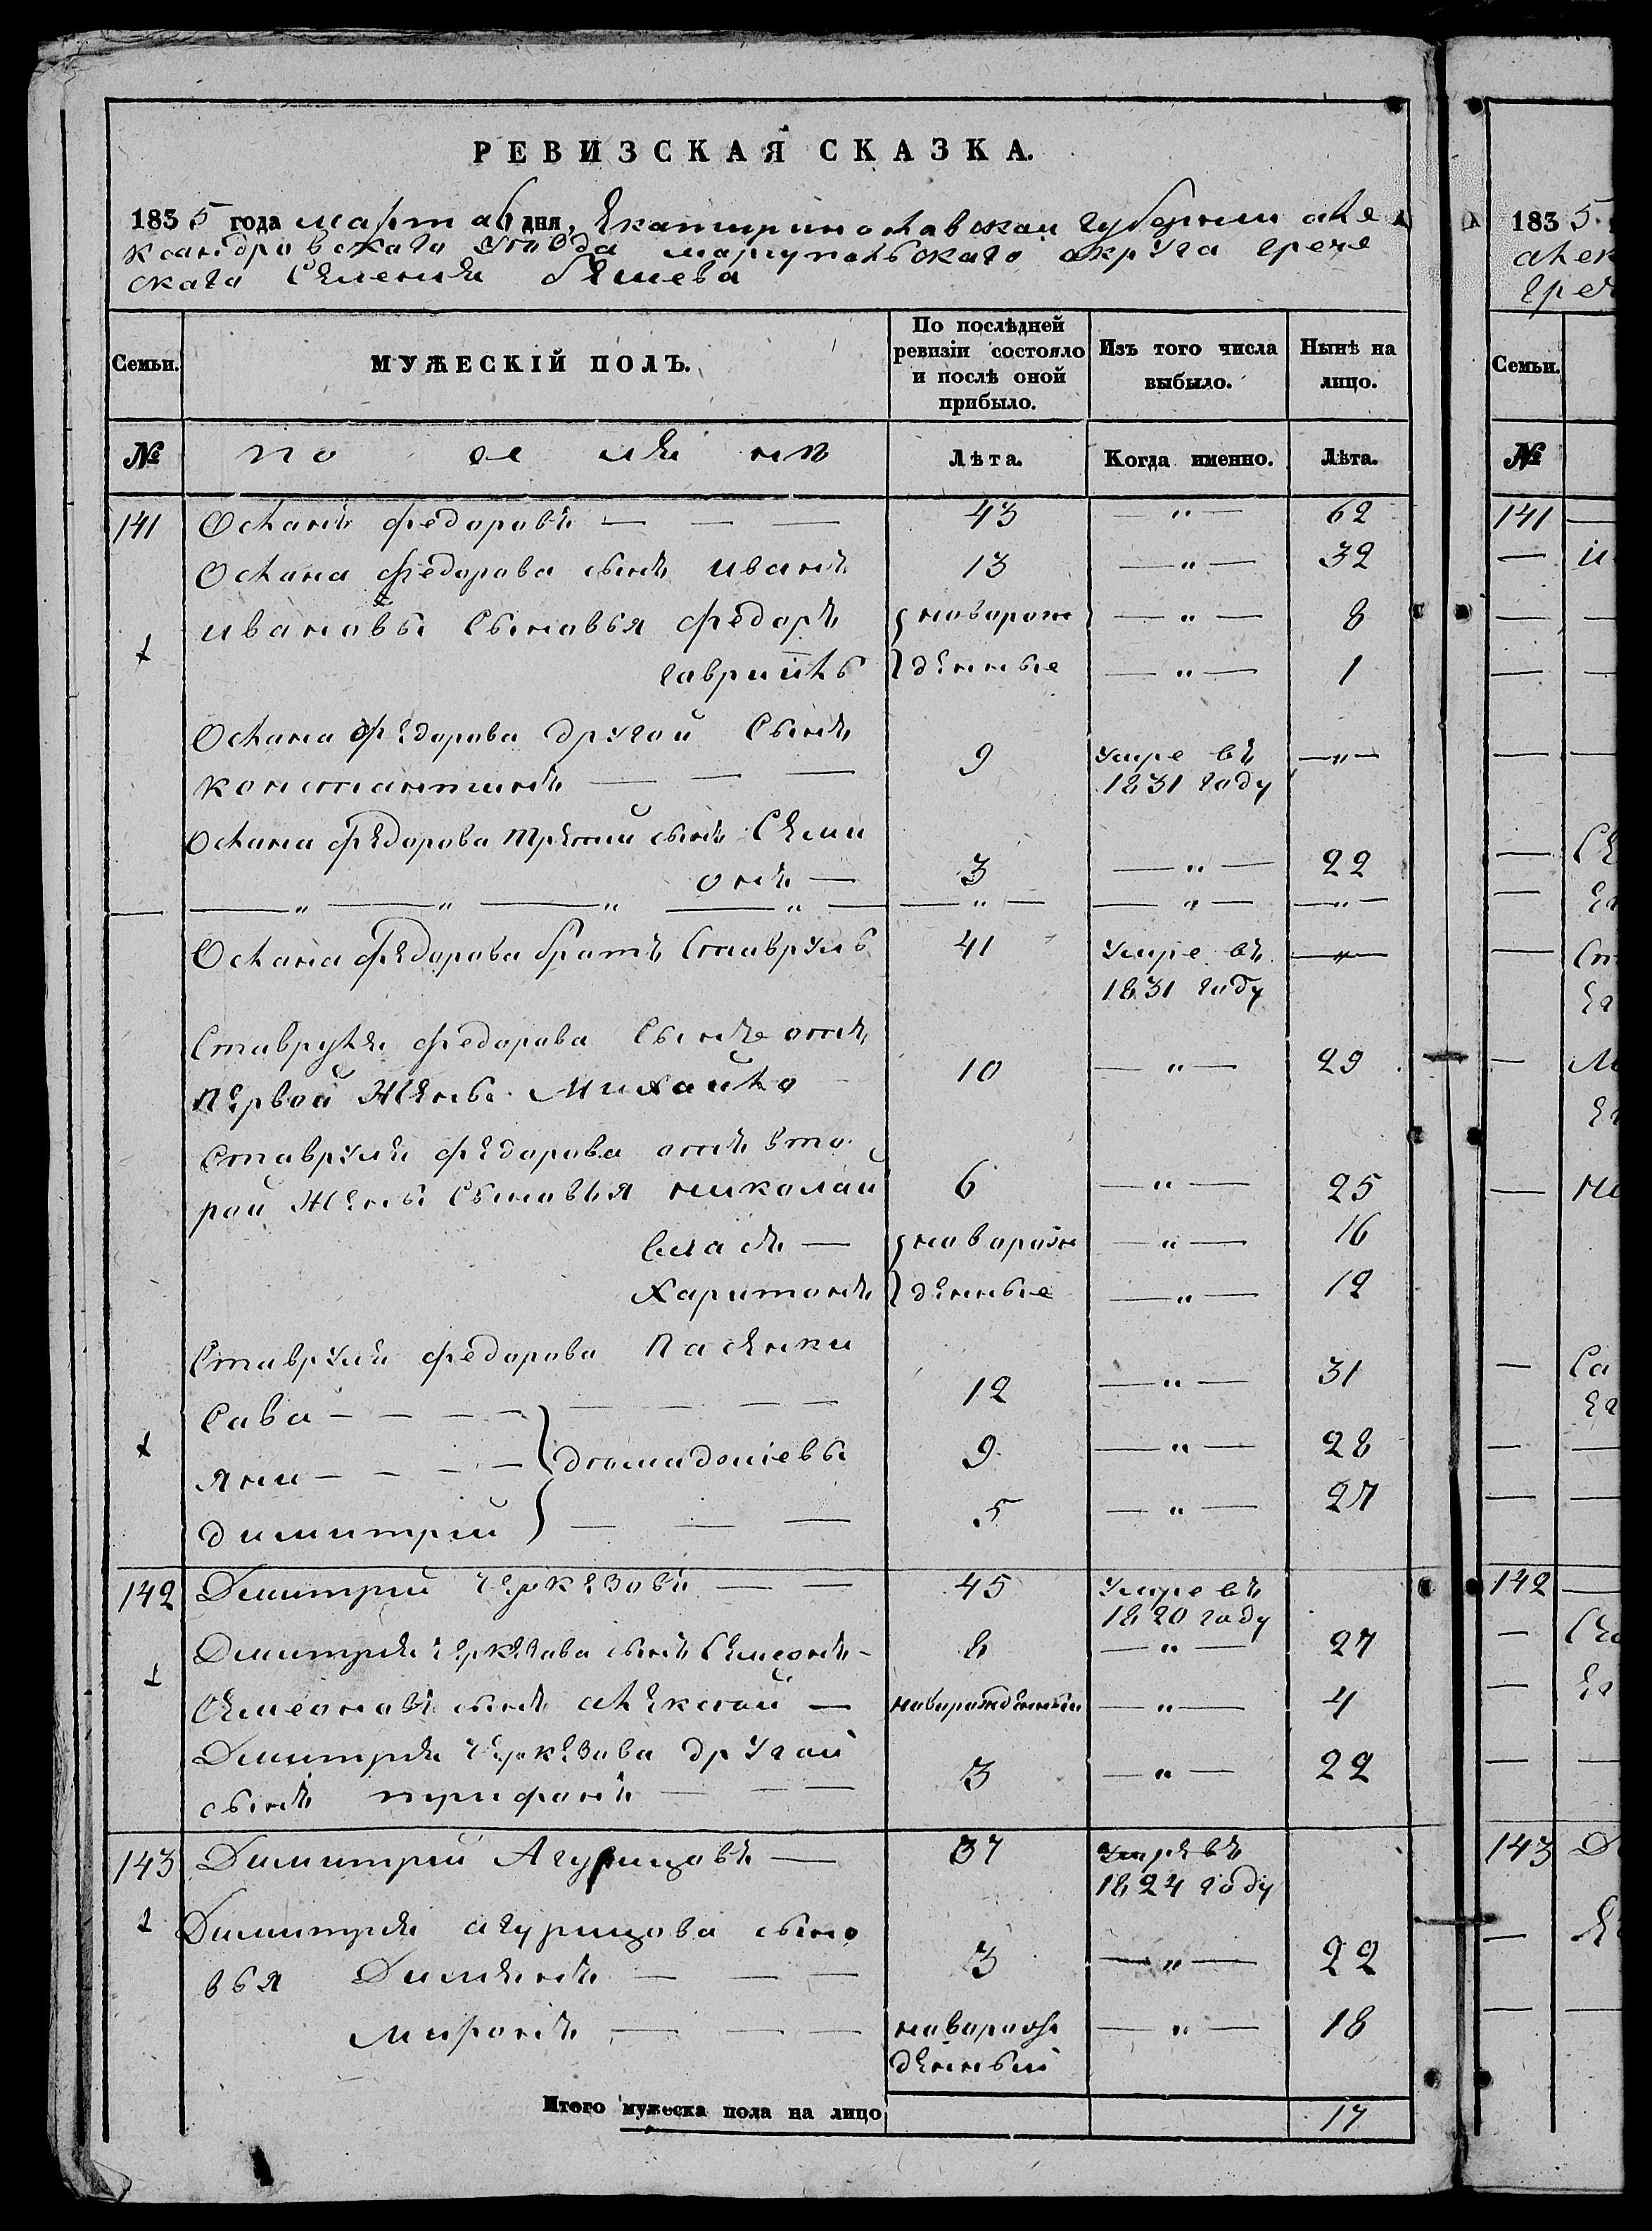 РЕВИЗСКАЯ СКАЗКА.
1835 года март дня, Екатиринославской губернии але
ксандровскаго уезда мариупольскаго округа грече
скаго селения бешева
Семьи. МУЖЕСКІЙ ПОЛЪ. По послѣдней ревизіи состояло и послѣ оной прибыло. Изъ того числа выбыло. Нынѣ на лицо.
№ поселянъ Лѣта. Когда именно. Лѣта.
141 Осланъ федоровъ — — — 43 — " — 62
Ослана федорова сынъ иванъ 13 — " — 32
ивановы сыновья федоръ новорож — " — 8
гаврiилъ денные — " — 1
Ослана федорова другой сынъ
константинъ — — — 9 умре въ 1831 году — " —
Ослана федорова третий сынъ Семи
онъ — 3 — " — 22
— " — " — " — " — — " — — " — — " —
Ослана федорова братъ Ставруль 41 умре въ 1831 году — " —
Ставруля федорова сынъ отъ
первой жены Михайло 10 — " — 29
Ставруля федорова отъ вто
рой жены сыновья николай 6 — " — 25
власъ — новорож — " — 16
Харитонъ денные — " — 12
Ставруля федорова пасенки
Сава — — — — — — — — 12 — " — 31
яни — — — — 9 — " — 28
димитрий — — — 5 — " — 27
142 Димитрий Черкезовъ — — 45 умре въ 1820 году
Димитрия черкезова сынъ Семеонъ — 8 — " — 27
Семеоновъ сынъ алексей — новорожденный — " — 4
Димитрия черкезова другой
сынъ трифонъ — — — 3 — " — 22
143 Димитрий Агурицовъ — 37 умре въ 1824 году
Димитрия агурицова сыно
вья Димянъ — — — 3 — " — 22
Миронъ — — — новорож — " — 18
денный
Итого мужеска пола на лицо 17
1835
алек
грече
Семьи.
№
141
142
143